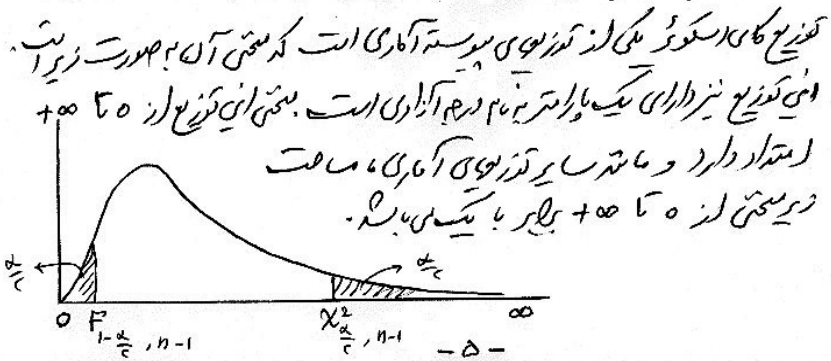 توزیع کای اسکوئر یکی از توزیع‌های پیوسته آماری است که منحنی آن به صورت زیر است.
این توزیع نیز دارای یک پارامتر به نام درجه آزادی است. منحنی این توزیع از 0 تا +∞
امتداد دارد و مانند سایر توزیع‌های آماری، مساحت
زیر منحنی از 0 تا +∞ برابر با یک می‌باشد.
α/۲
α/۲
0 F 1-α/۲, n-1 X² α/۲, n-1 ∞
-۵-